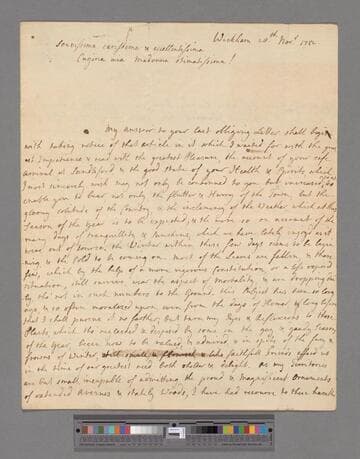 Wickham 20th Novr. 1752
carissima & eccellentissima
Cugina mia Madonna stimatissima!
My answer to your last obliging Letter shall begin
with taking notice of that article in it which I waited for with the great
est Impatience & read with the greatest Pleasure, the account of your safe
arrival at & the good state of your Health & Spirits which
I most sincerely wish may not only be continued to you but increased, to
enable you to bear not only the flutter & Hurry of the Town, but the
gloomy solitude of the Country & the inclemency of the Weather which at this
season of the year is to be expected, & the more so on account of the
many days of tranquillity & sunshine, which we have lately enjoyed &
near out of course, the Winter within these few days seems to be
ing & the Cold to be coming on. Most of the Leaves are fallen, & those
few, which by the help of a more vigorous constitution, or a less exposed
situation, still survive wear the aspect of mortality, & are dropping
ly tho not in such numbers to the Ground. This subject has been so long
ago, & so often moralized upon even from the days of Homer & long before
that I shall pursue it no farther, but turn my Eyes & Affections to those
Plants which tho neglected & despised by some in the gay & gaudy season
of the Year, begin now to be valued, & admired & in spite of the
frowns of Winter, like faithfull friends afford us
in the time of our greatest need both shelter & delight. As my Territories
are but small, incapable of admitting the proud & Magnificent Ornaments
of extended Avenues & stately Woods, I have had recourse to these humble